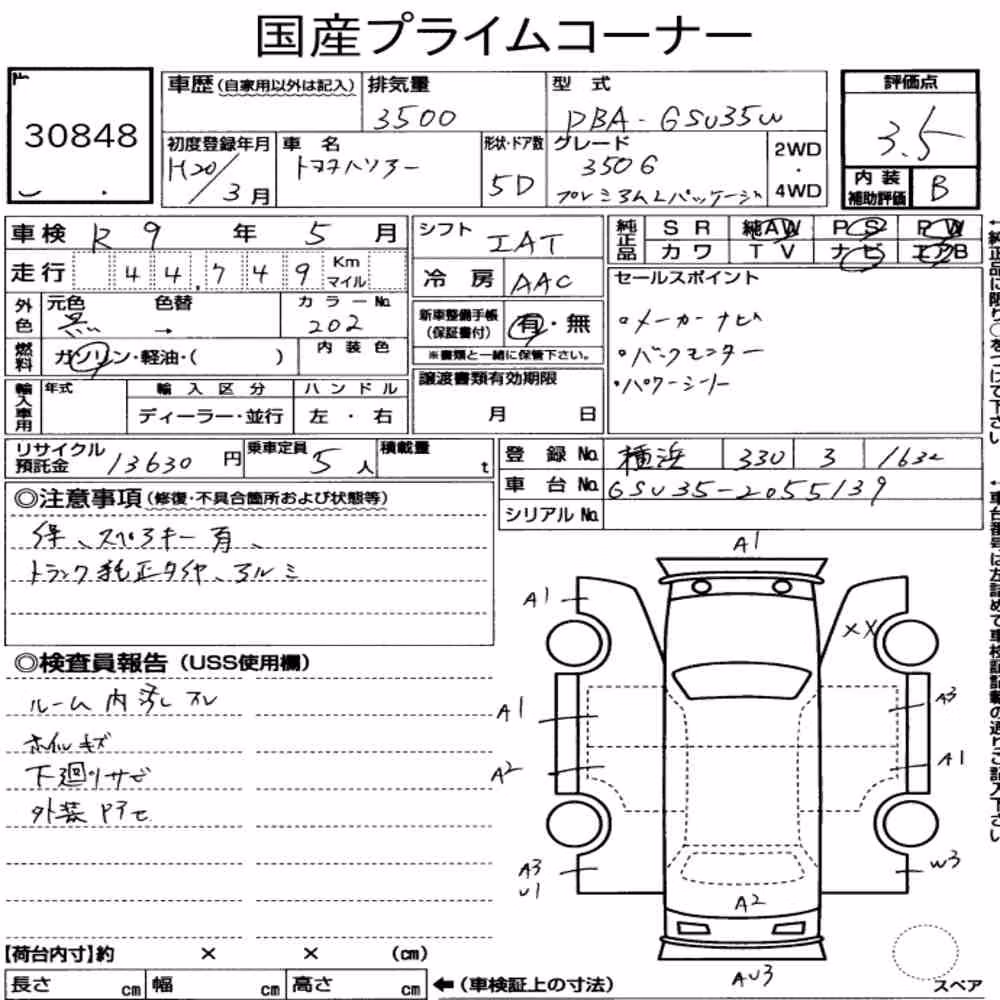 国産プライムコーナー
30848
車歴(自家用以外は記入) 排気量 型式 評価点
3500 DBA-GSU35W 3.5
初度登録年月 車名 形状・ドア数 グレード 2WD・4WD
H20/3月 トヨタハリアー 5D 350G
プレミアムLパッケージ
内装補助評価 B
車検 R9年5月 シフト IAT
純正品 SR 純AW PS PW
カワ TV ナビ エアB
走行 44,749 Km マイル
冷房 AAC
セールスポイント
外色 元色 色替 カラーNo.
黒 → 202
新車整備手帳(保証書付) 有・無
※書類と一緒に保管下さい。
・メーカーナビ
・バックモニター
・パワーシート
燃料 ガソリン・軽油・( ) 内装色
輸入車用 年式 輸入区分 ハンドル
ディーラー・並行 左・右
譲渡書類有効期限
月 日
リサイクル預託金 13630円 乗車定員 5人 積載量 t
登録No. 横浜 330 3 1632
車台No. GSU35-2055139
シリアルNo.
◎注意事項(修復・不具合箇所および状態等)
保、スペアキー有、
トランク純正タイヤ、アルミ
◎検査員報告(USS使用欄)
ルーム内汚レスレ
ホイルキズ
下廻りサビ
外装
A1
A1
XX
A1
A3
A2
A1
A3
U1
W3
A2
AU3
【荷台内寸】約 × × (cm)
長さ cm 幅 cm 高さ cm ←(車検証上の寸法)
スペア
↑純正品に限り○をつけて下さい
↑車台番号は左詰めで車検証記載の通りご記入下さい